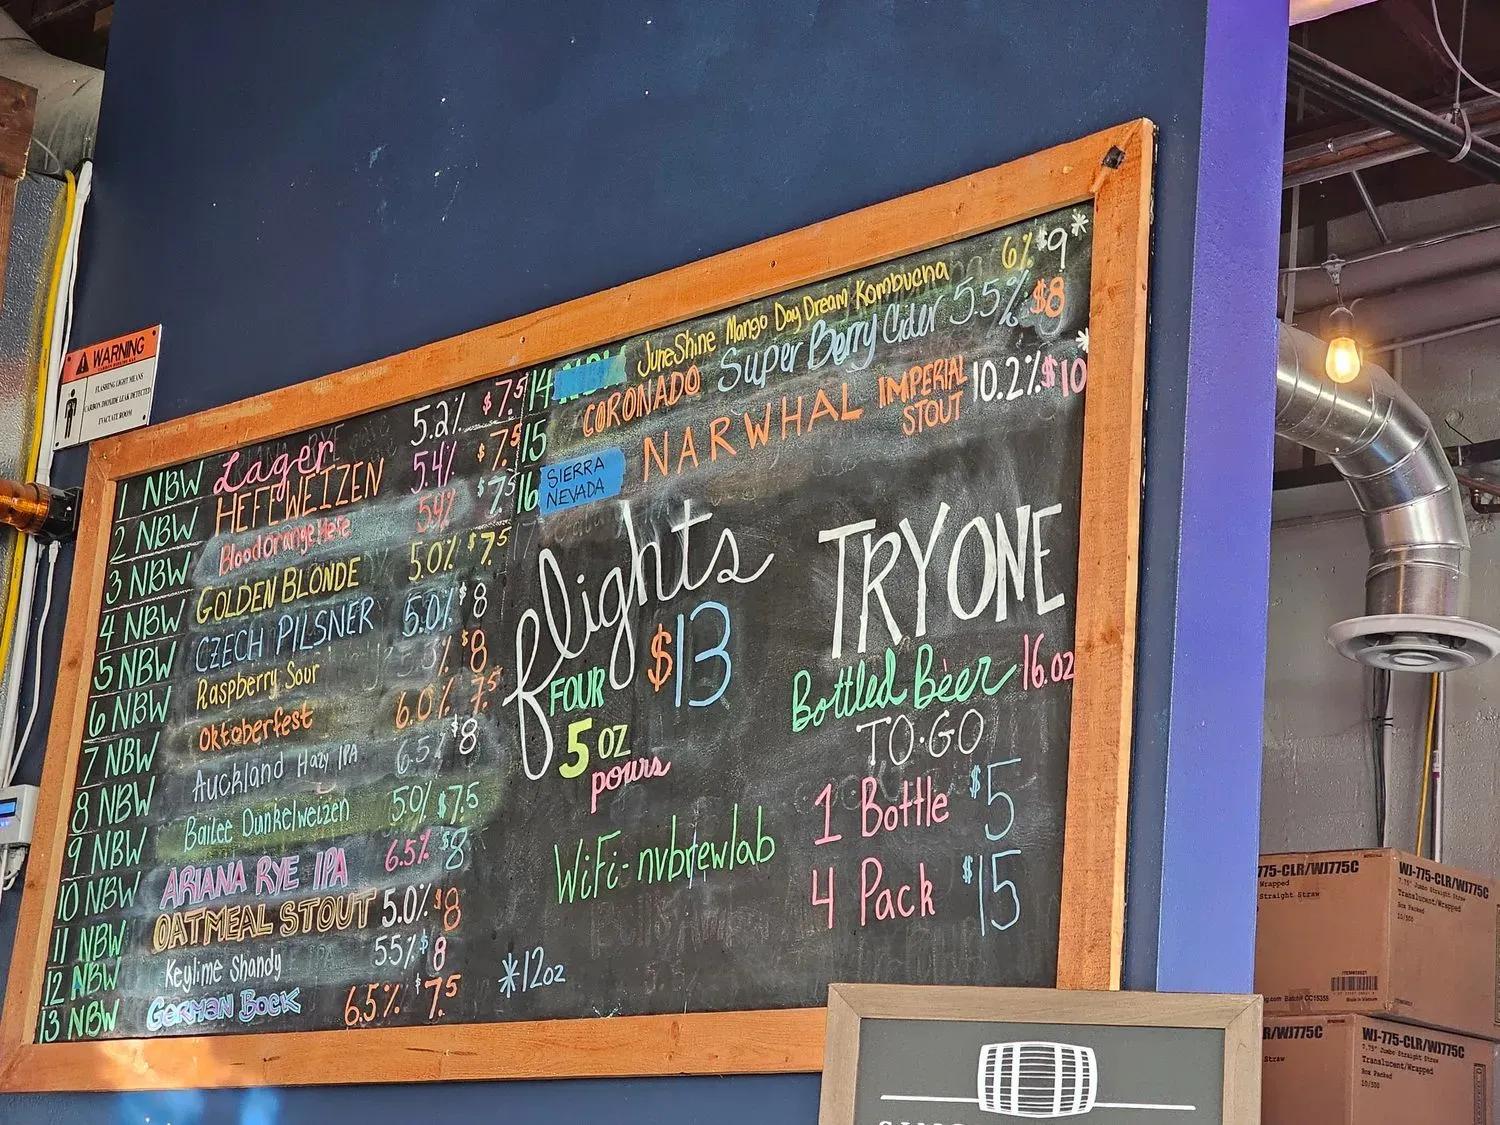 WARNING
FLASHING LIGHT MEANS
CARBON DIOXIDE LEAK DETECTED
EVACUATE ROOM
1 NBW Lager 5.2% $7.5
2 NBW HEFEWEIZEN 5.4% $7.5
3 NBW Blood Orange Hefe 5.4% $7.5
4 NBW GOLDEN BLONDE 5.0% $7.5
5 NBW CZECH PILSNER 5.0% $8
6 NBW Raspberry Sour $8
7 NBW Oktoberfest 6.0% 7.5
8 NBW Auckland Hazy IPA 6.5% $8
9 NBW Bailee Dunkelweizen 5.0% $7.5
10 NBW ARIANA RYE IPA 6.5% $8
11 NBW OATMEAL STOUT 5.0% $8
12 NBW Keylime Shandy 5.5% $8
13 NBW GERMAN BOCK 6.5% $7.5
14 JuneShine Mango Day Dream Kombucha 6% $9*
15 CORONADO Super Berry Cider 5.5% $8
16 SIERRA NEVADA NARWHAL IMPERIAL STOUT 10.2% $10*
flights
$13
FOUR
5 OZ
pours
WiFi-nvbrewlab
*12oz
TRY ONE
Bottled Beer 16.oz
TO-GO
1 Bottle $5
4 Pack $15
775-CLR/WJ775C
Wrapped
Straight Straw
WJ-775-CLR/WJ775C
7.75" Jumbo Straight Straw
Translucent/Wrapped
Box Packed
10/500
Made in Vietnam
R/WJ775C
Straw
WJ-775-CLR/WJ775C
7.75" Jumbo Straight Straw
Translucent/Wrapped
Box Packed
10/500